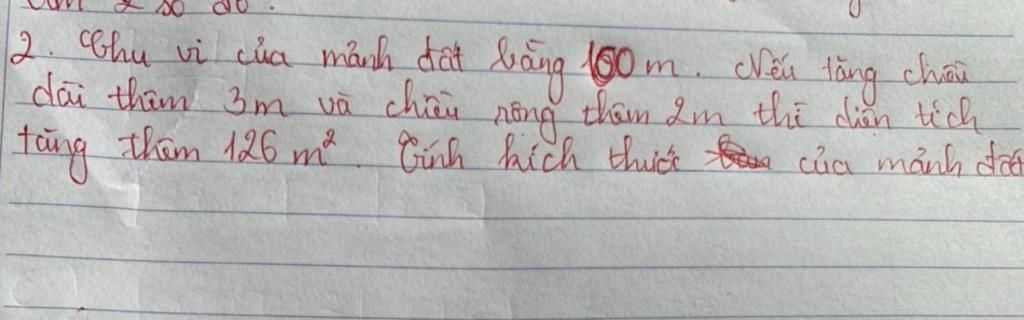 2. Chu vi của mảnh đất bằng 100m. Nếu tăng chiều
dài thêm 3m và chiều rộng thêm 2m thì diện tích
tăng thêm 126 m². Tính kích thước của mảnh đất